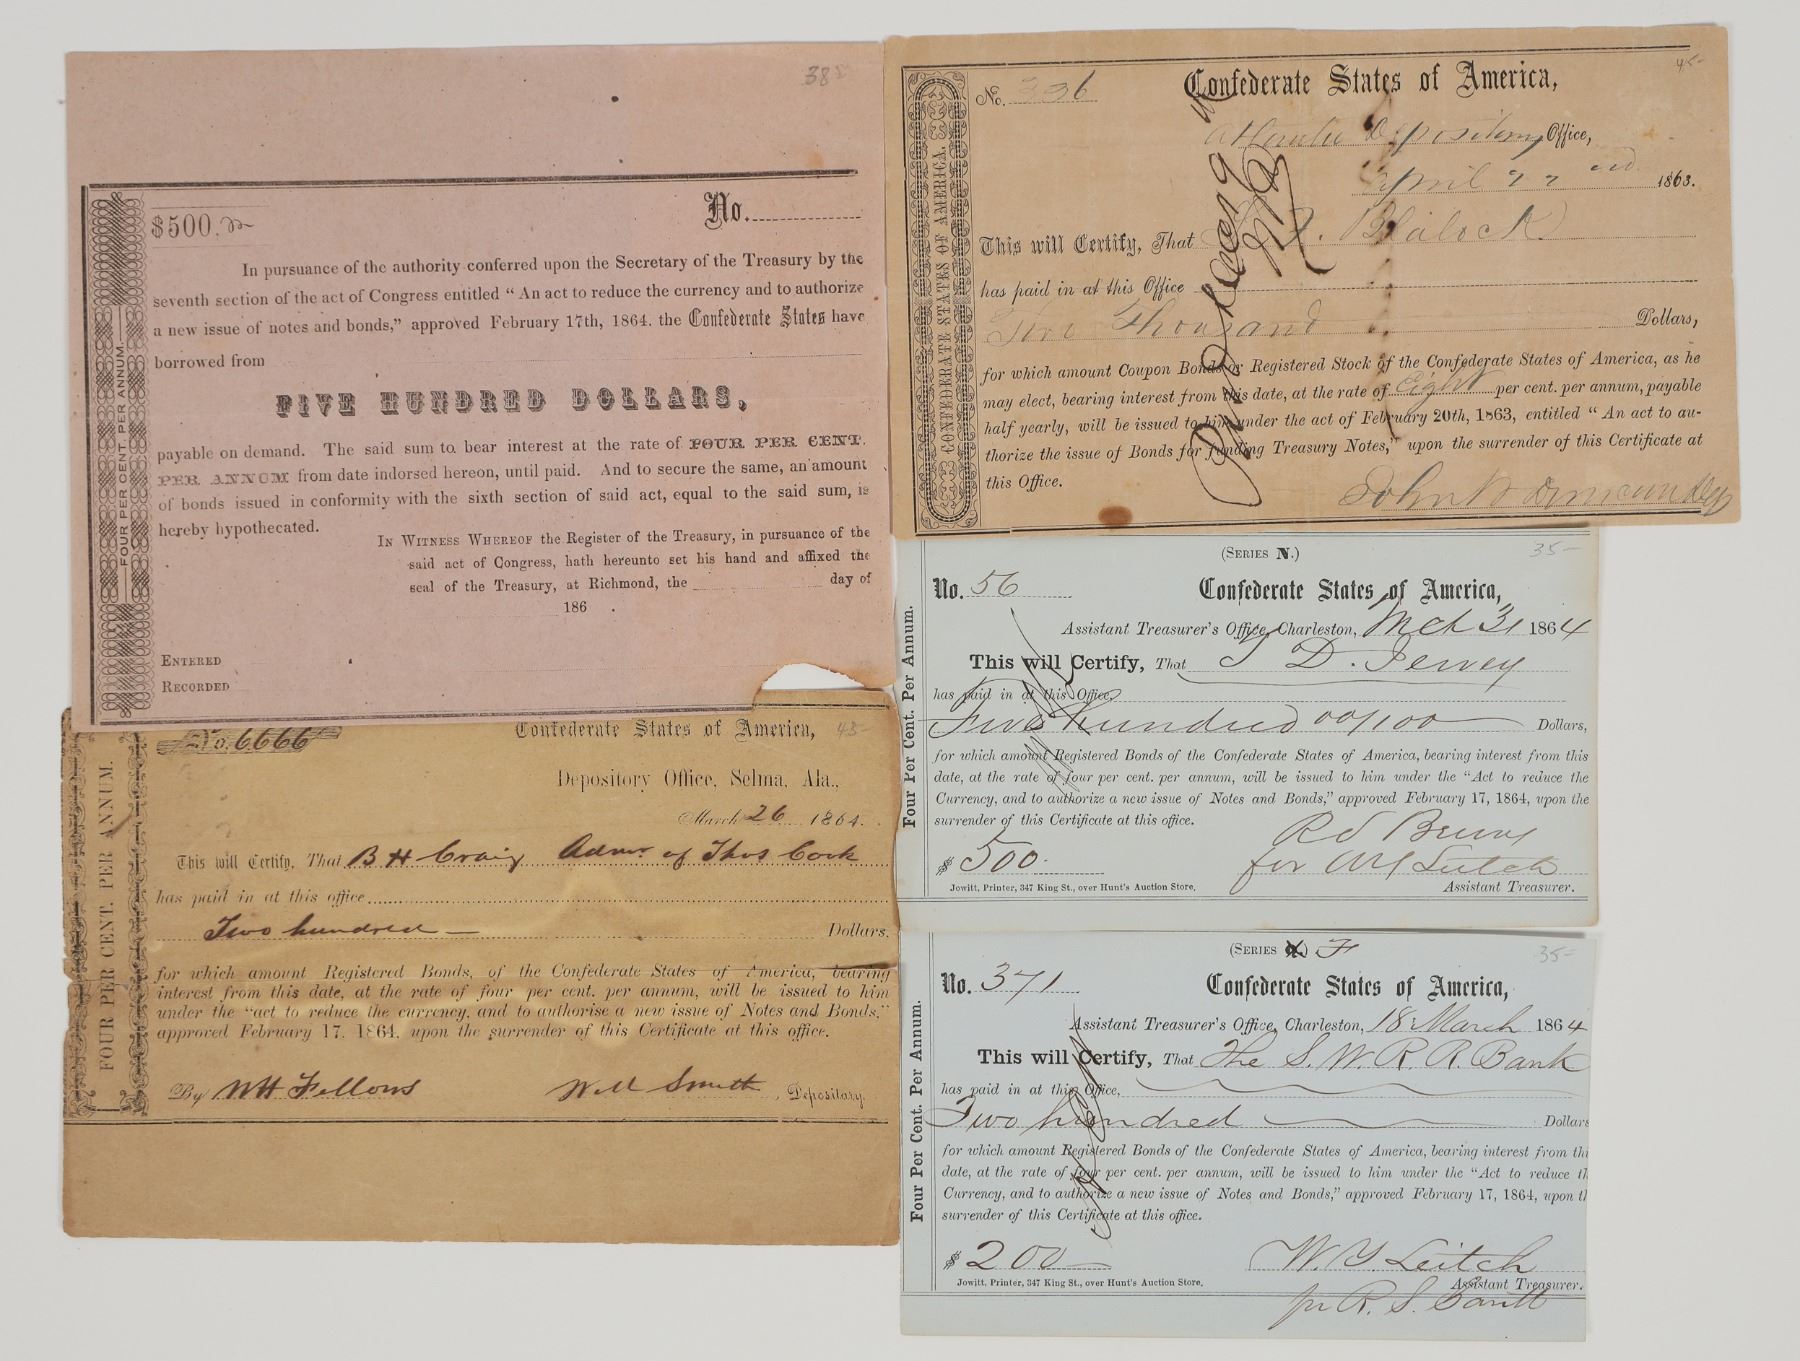 38
$500.
No.
In pursuance of the authority conferred upon the Secretary of the Treasury by the
seventh section of the act of Congress entitled “ An act to reduce the currency and to authorize
a new issue of notes and bonds,” approved February 17th, 1864. the Confederate States have
borrowed from
FIVE HUNDRED DOLLARS,
payable on demand. The said sum to bear interest at the rate of FOUR PER CENT.
PER ANNUM from date indorsed hereon, until paid. And to secure the same, an amount
of bonds issued in conformity with the sixth section of said act, equal to the said sum, is
hereby hypothecated.
IN WITNESS WHEREOF the Register of the Treasury, in pursuance of the
said act of Congress, hath hereunto set his hand and affixed the
seal of the Treasury, at Richmond, the day of
186 .
ENTERED
RECORDED
FOUR PER CENT. PER ANNUM.
45-
No. 336
Confederate States of America,
Depository Office,
April 22nd 1863.
This will Certify, That Blalock
has paid in at this Office
Two Thousand Dollars,
for which amount Coupon Bonds or Registered Stock of the Confederate States of America, as he
may elect, bearing interest from this date, at the rate of Eight per cent. per annum, payable
half yearly, will be issued to him under the act of February 20th, 1863, entitled “ An act to au-
thorize the issue of Bonds for funding Treasury Notes,” upon the surrender of this Certificate at
this Office.
CONFEDERATE STATES OF AMERICA.
(SERIES N.)
35-
No. 56
Confederate States of America,
Assistant Treasurer's Office, Charleston, Mch 31 1864
This will Certify, That T D. Jervey
has paid in at this Office,
Five hundred 00/100 Dollars,
for which amount Registered Bonds of the Confederate States of America, bearing interest from this
date, at the rate of four per cent. per annum, will be issued to him under the “Act to reduce the
Currency, and to authorize a new issue of Notes and Bonds,” approved February 17, 1864, upon the
surrender of this Certificate at this office.
$ 500.
for WY Leitch
Jowitt, Printer, 347 King St., over Hunt's Auction Store,
Assistant Treasurer.
Four Per Cent. Per Annum.
No. 6666
Confederate States of America,
45-
Depository Office, Selma, Ala.,
March 26 1864.
This will Certify, That B H Craig Admr. of Thos Cock
has paid in at this office
Two hundred — Dollars.
for which amount Registered Bonds, of the Confederate States of America, bearing
interest from this date, at the rate of four per cent. per annum, will be issued to him
under the “act to reduce the currency, and to authorise a new issue of Notes and Bonds,”
approved February 17, 1864. upon the surrender of this Certificate at this office.
By WH Fellows Will Smith, Depositary.
FOUR PER CENT. PER ANNUM.
(SERIES F
35-
No. 371
Confederate States of America,
Assistant Treasurer's Office, Charleston, 18 March 1864
This will Certify, That The S. W. R. R. Bank
has paid in at this Office,
Two hundred Dollars
for which amount Registered Bonds of the Confederate States of America, bearing interest from thi
date, at the rate of four per cent. per annum, will be issued to him under the “Act to reduce th
Currency, and to authorize a new issue of Notes and Bonds,” approved February 17, 1864, upon tl
surrender of this Certificate at this office.
$ 200
W. Y. Leitch
Jowitt, Printer, 347 King St., over Hunt's Auction Store,
Assistant Treasurer.
pr R. S.
Four Per Cent. Per Annum.